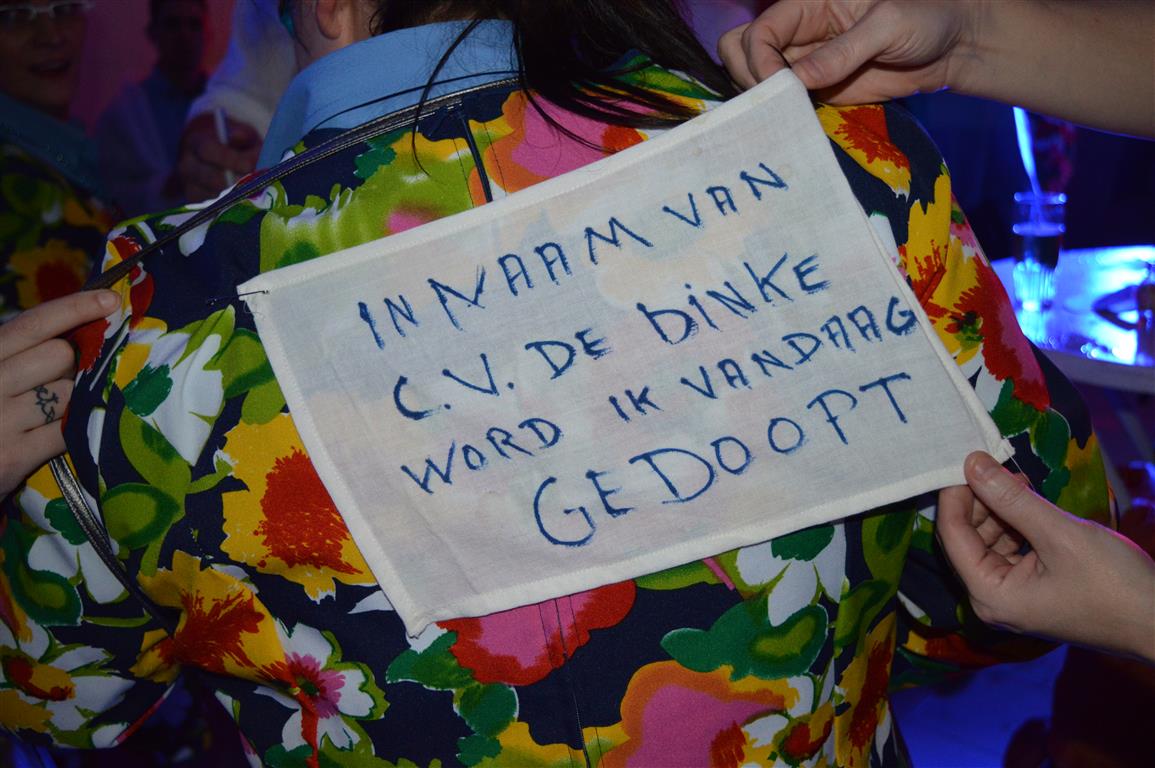 IN NAAM VAN
C.V. DE DINKE
WORD IK VANDAAG
GEDOOPT